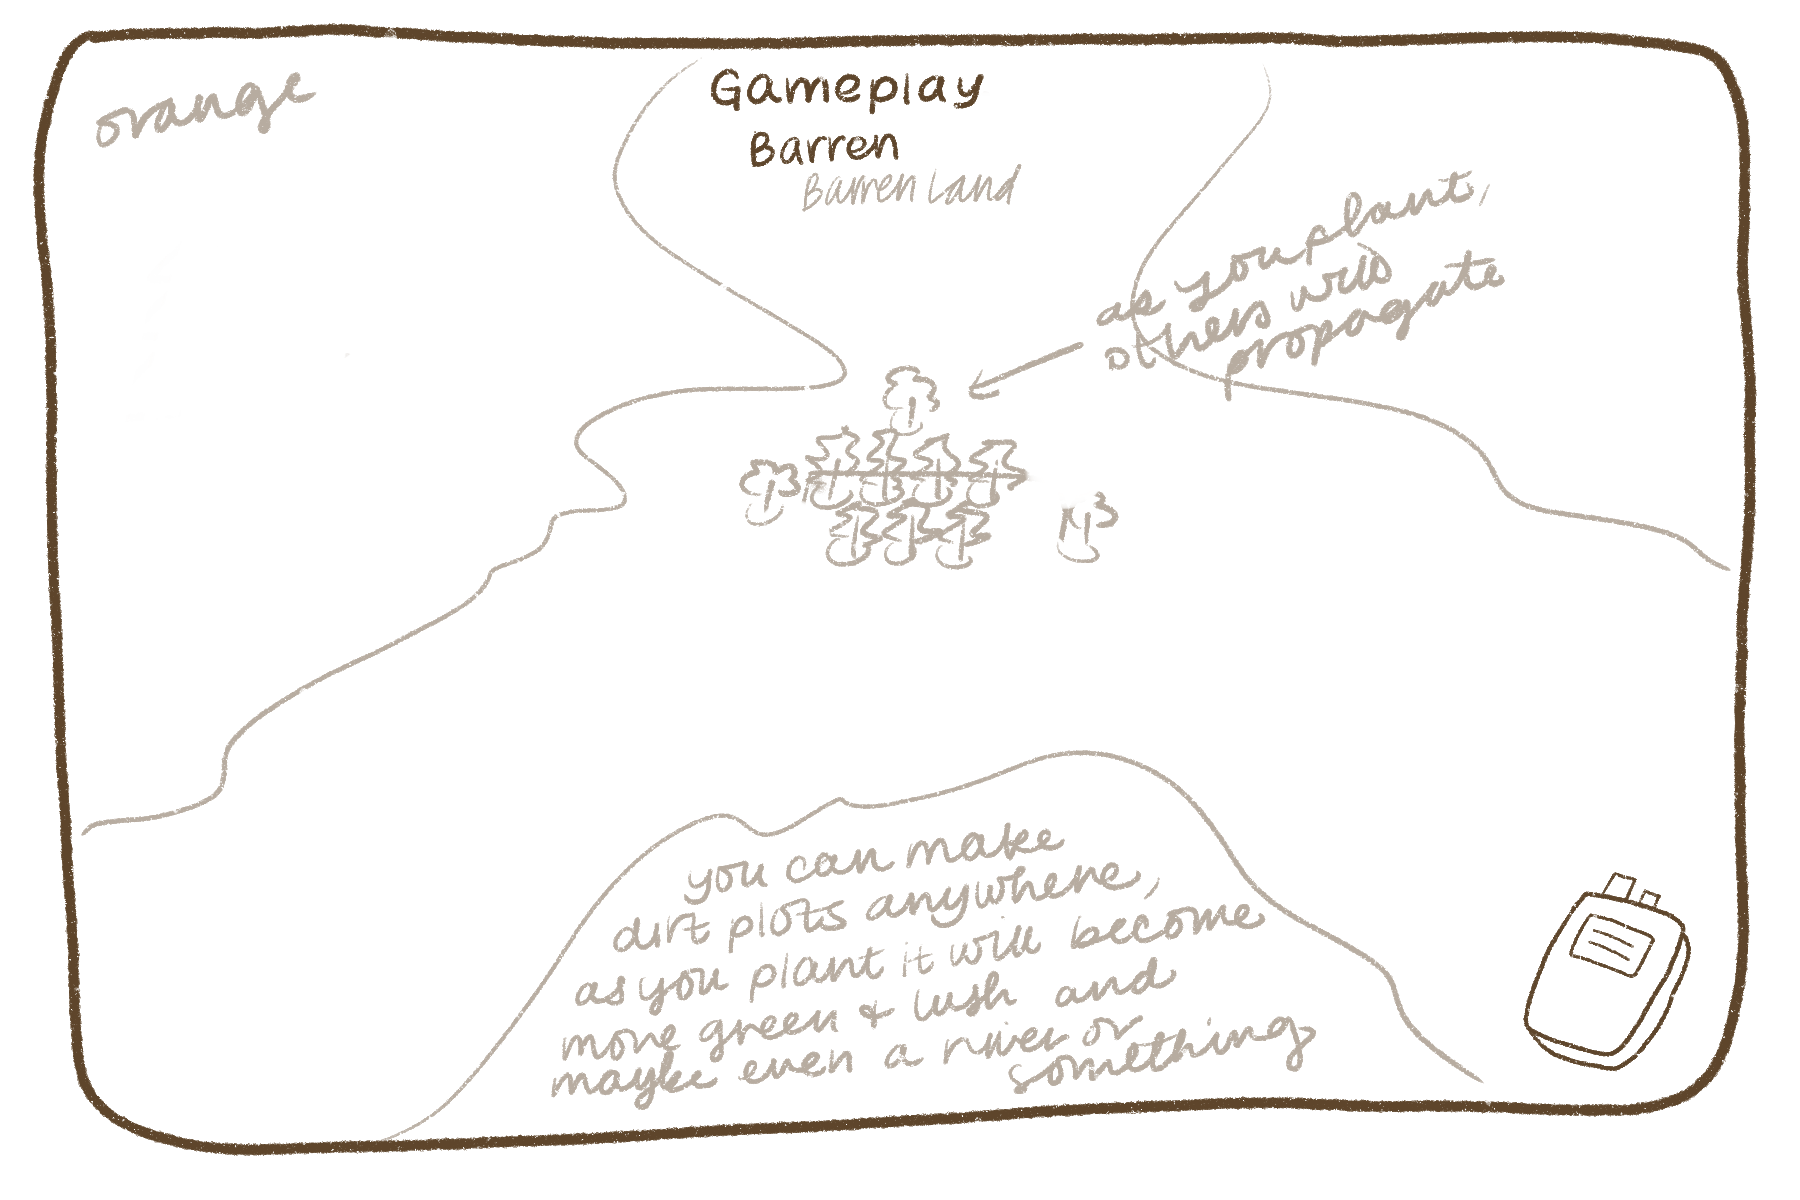 orange
Gameplay
Barren
Barren Land
as you plant,
others will
propagate
you can make
dirt plots anywhere,
as you plant it will become
more green & lush and
maybe even a river or
something